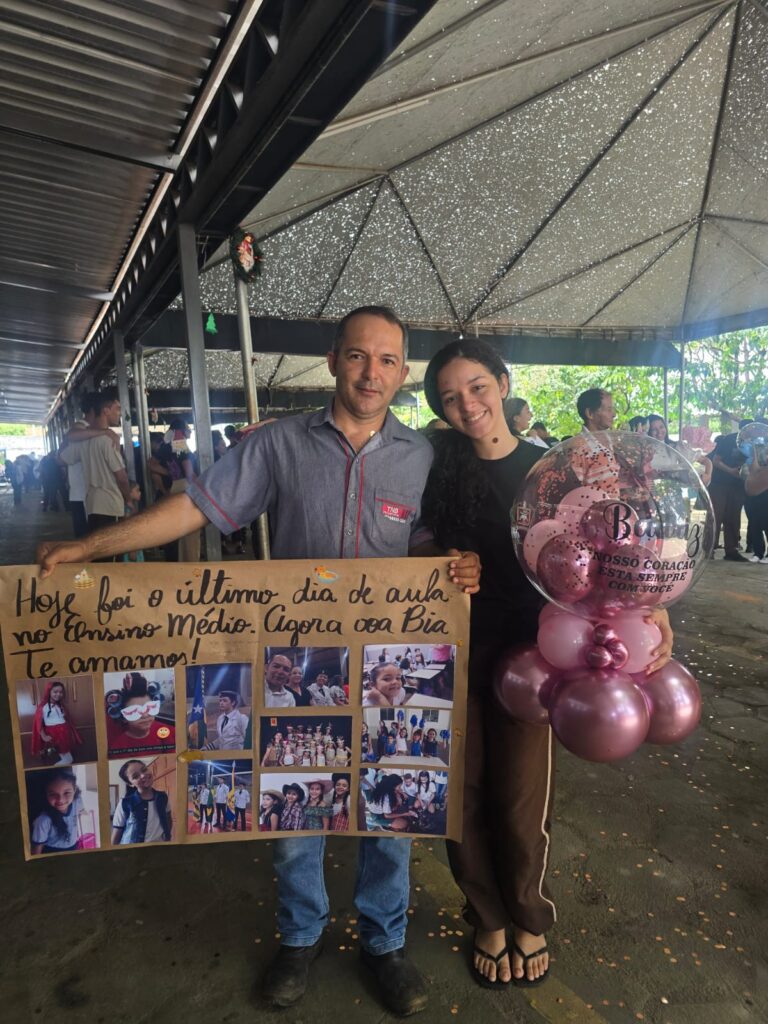 Hoje foi o último dia de aula
no Ensino Médio. Agora voa Bia
Te amamos!
Beatriz
NOSSO CORAÇÃO
ESTÁ SEMPRE
COM VOCÊ